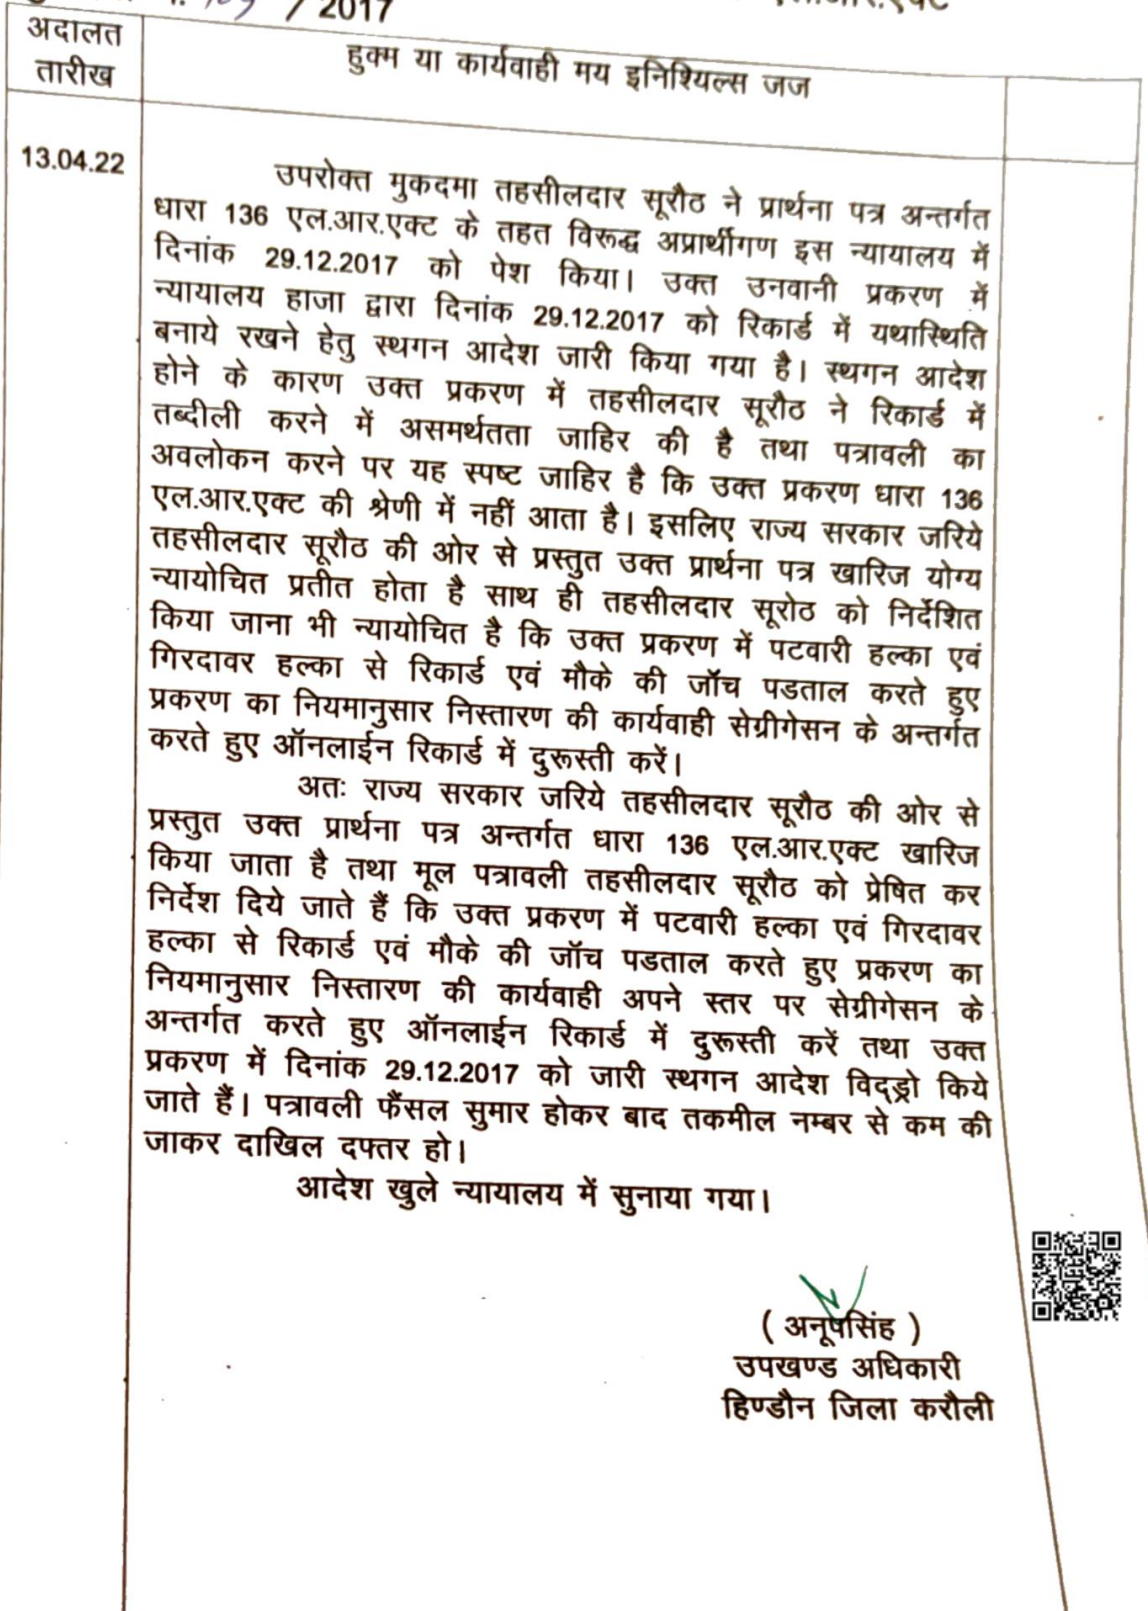 / 2017
अदालत
तारीख
हुक्म या कार्यवाही मय इनिश्यिल्स जज
13.04.22
उपरोक्त मुकदमा तहसीलदार सूरौठ ने प्रार्थना पत्र अन्तर्गत
धारा 136 एल.आर.एक्ट के तहत विरूद्ध अप्रार्थीगण इस न्यायालय में
दिनांक 29.12.2017 को पेश किया। उक्त उनवानी प्रकरण में
न्यायालय हाजा द्वारा दिनांक 29.12.2017 को रिकार्ड में यथास्थिति
बनाये रखने हेतु स्थगन आदेश जारी किया गया है। स्थगन आदेश
होने के कारण उक्त प्रकरण में तहसीलदार सूरौठ ने रिकार्ड में
तब्दीली करने में असमर्थतता जाहिर की है तथा पत्रावली का
अवलोकन करने पर यह स्पष्ट जाहिर है कि उक्त प्रकरण धारा 136
एल.आर.एक्ट की श्रेणी में नहीं आता है। इसलिए राज्य सरकार जरिये
तहसीलदार सूरौठ की ओर से प्रस्तुत उक्त प्रार्थना पत्र खारिज योग्य
न्यायोचित प्रतीत होता है साथ ही तहसीलदार सूरोठ को निर्देशित
किया जाना भी न्यायोचित है कि उक्त प्रकरण में पटवारी हल्का एवं
गिरदावर हल्का से रिकार्ड एवं मौके की जॉच पडताल करते हुए
प्रकरण का नियमानुसार निस्तारण की कार्यवाही सेग्रीगेसन के अन्तर्गत
करते हुए ऑनलाईन रिकार्ड में दुरूस्ती करें।
अतः राज्य सरकार जरिये तहसीलदार सूरौठ की ओर से
प्रस्तुत उक्त प्रार्थना पत्र अन्तर्गत धारा 136 एल.आर.एक्ट खारिज
किया जाता है तथा मूल पत्रावली तहसीलदार सूरौठ को प्रेषित कर
निर्देश दिये जाते हैं कि उक्त प्रकरण में पटवारी हल्का एवं गिरदावर
हल्का से रिकार्ड एवं मौके की जॉच पडताल करते हुए प्रकरण का
नियमानुसार निस्तारण की कार्यवाही अपने स्तर पर सेग्रीगेसन के
अन्तर्गत करते हुए ऑनलाईन रिकार्ड में दुरूस्ती करें तथा उक्त
प्रकरण में दिनांक 29.12.2017 को जारी स्थगन आदेश विद्ड्रो किये
जाते हैं। पत्रावली फैंसल सुमार होकर बाद तकमील नम्बर से कम की
जाकर दाखिल दफ्तर हो।
आदेश खुले न्यायालय में सुनाया गया।
( अनूपसिंह )
उपखण्ड अधिकारी
हिण्डौन जिला करौली